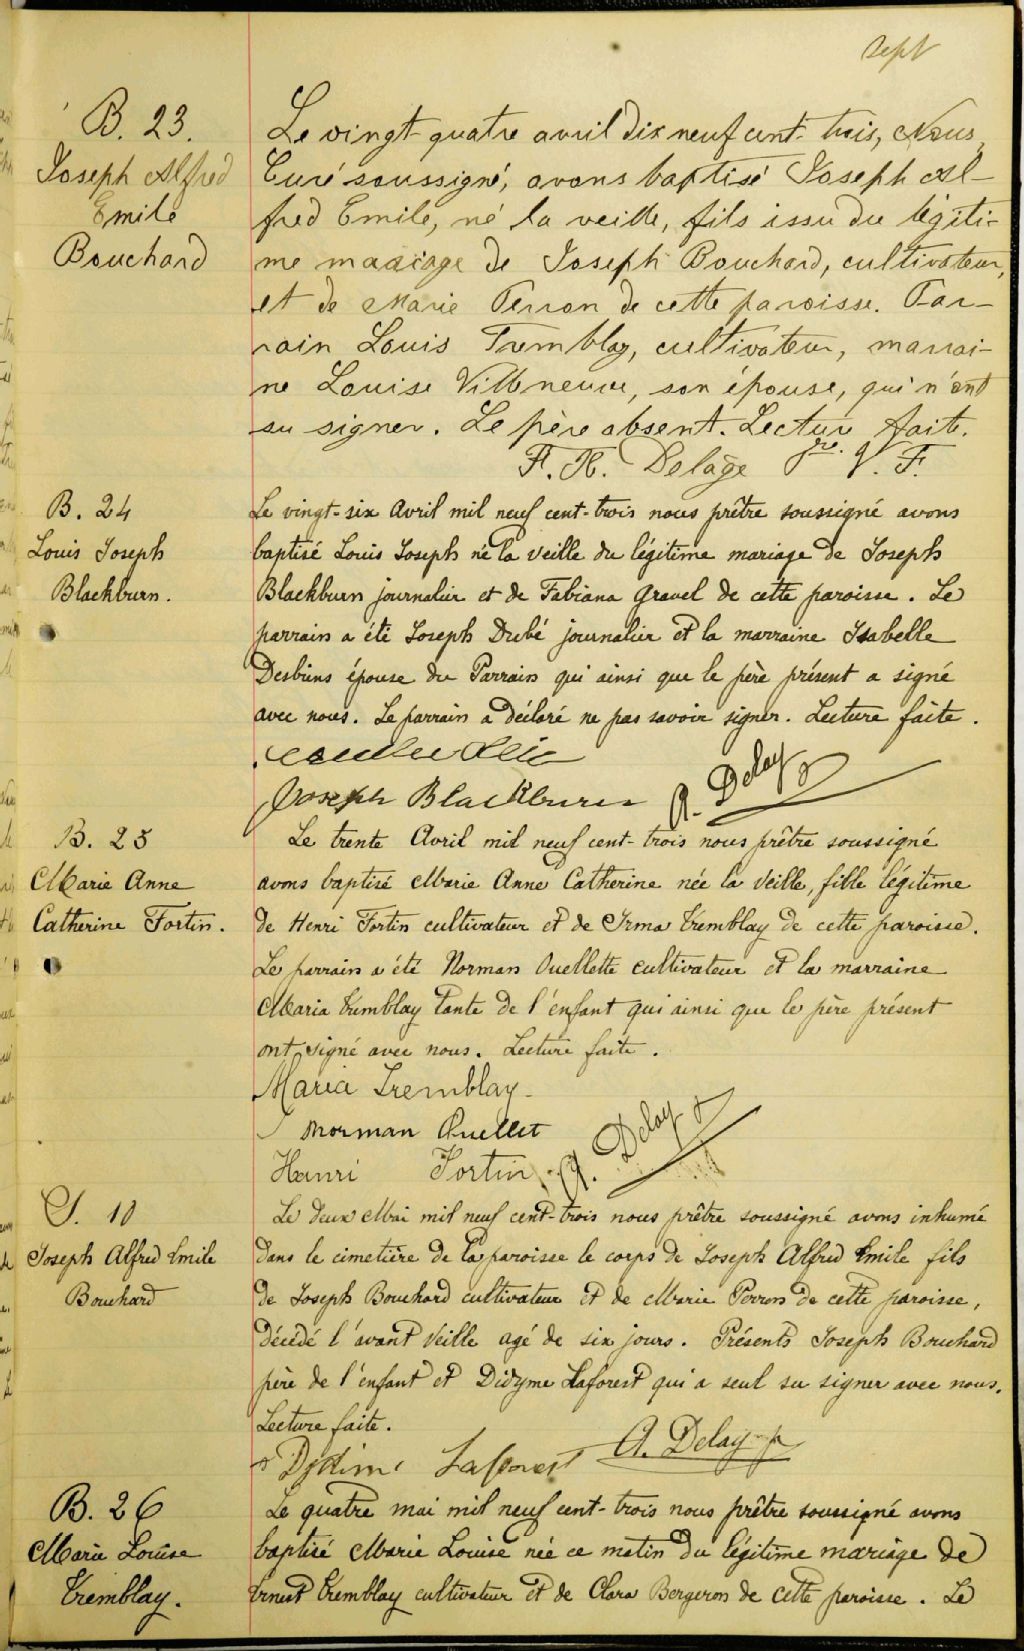 sept
B. 23.
Joseph Alfred
Emile
Bouchard
Le vingt-quatre avril dix neuf cent-trois, Nous,
Curé soussigné, avons baptisé Joseph Al-
fred Emile, né la veille, fils issu du légiti-
me mariage de Joseph Bouchard, cultivateur,
et de Marie Perron de cette paroisse. Par-
rain Louis Tremblay, cultivateur, marrai-
ne Louise Villeneuve, son épouse, qui n'ont
su signer. Le père absent. Lecture faite.
F. X. Delâge ptre. V. F.
B. 24
Louis Joseph
Blackburn.
Le vingt-six Avril mil neuf cent-trois nous prêtre soussigné avons
baptisé Louis Joseph né la veille du légitime mariage de Joseph
Blackburn journalier et de Fabiana Gravel de cette paroisse. Le
parrain a été Joseph Dubé journalier et la marraine Isabelle
Desbiens épouse du Parrain qui ainsi que le père présent a signé
avec nous. Le parrain a déclaré ne pas savoir signer. Lecture faite.
Joseph Blackburn A. Delay
B. 25
Marie Anne
Catherine Fortin.
Le trente Avril mil neuf cent-trois nous prêtre soussigné
avons baptisé Marie Anne Catherine née la veille, fille légitime
de Henri Fortin cultivateur et de Irma Tremblay de cette paroisse.
Le parrain a été Norman Ouellette cultivateur et la marraine
Maria Tremblay tante de l'enfant qui ainsi que le père présent
ont signé avec nous. Lecture faite.
Maria Tremblay
Norman Ouellet
Henri Fortin A. Delay
S. 10
Joseph Alfred Emile
Bouchard
Le deux Mai mil neuf cent-trois nous prêtre soussigné avons inhumé
dans le cimetière de la paroisse le corps de Joseph Alfred Emile fils
de Joseph Bouchard cultivateur et de Marie Perron de cette paroisse,
décédé l'avant veille agé de six jours. Présents Joseph Bouchard
père de l'enfant et Didyme Laforest qui a seul su signer avec nous.
Lecture faite.
Laforest A. Delay
B. 26
Marie Louise
Tremblay.
Le quatre mai mil neuf cent-trois nous prêtre soussigné avons
baptisé Marie Louise née ce matin du légitime mariage de
Ernest Tremblay cultivateur et de Clara Bergeron de cette paroisse. Le